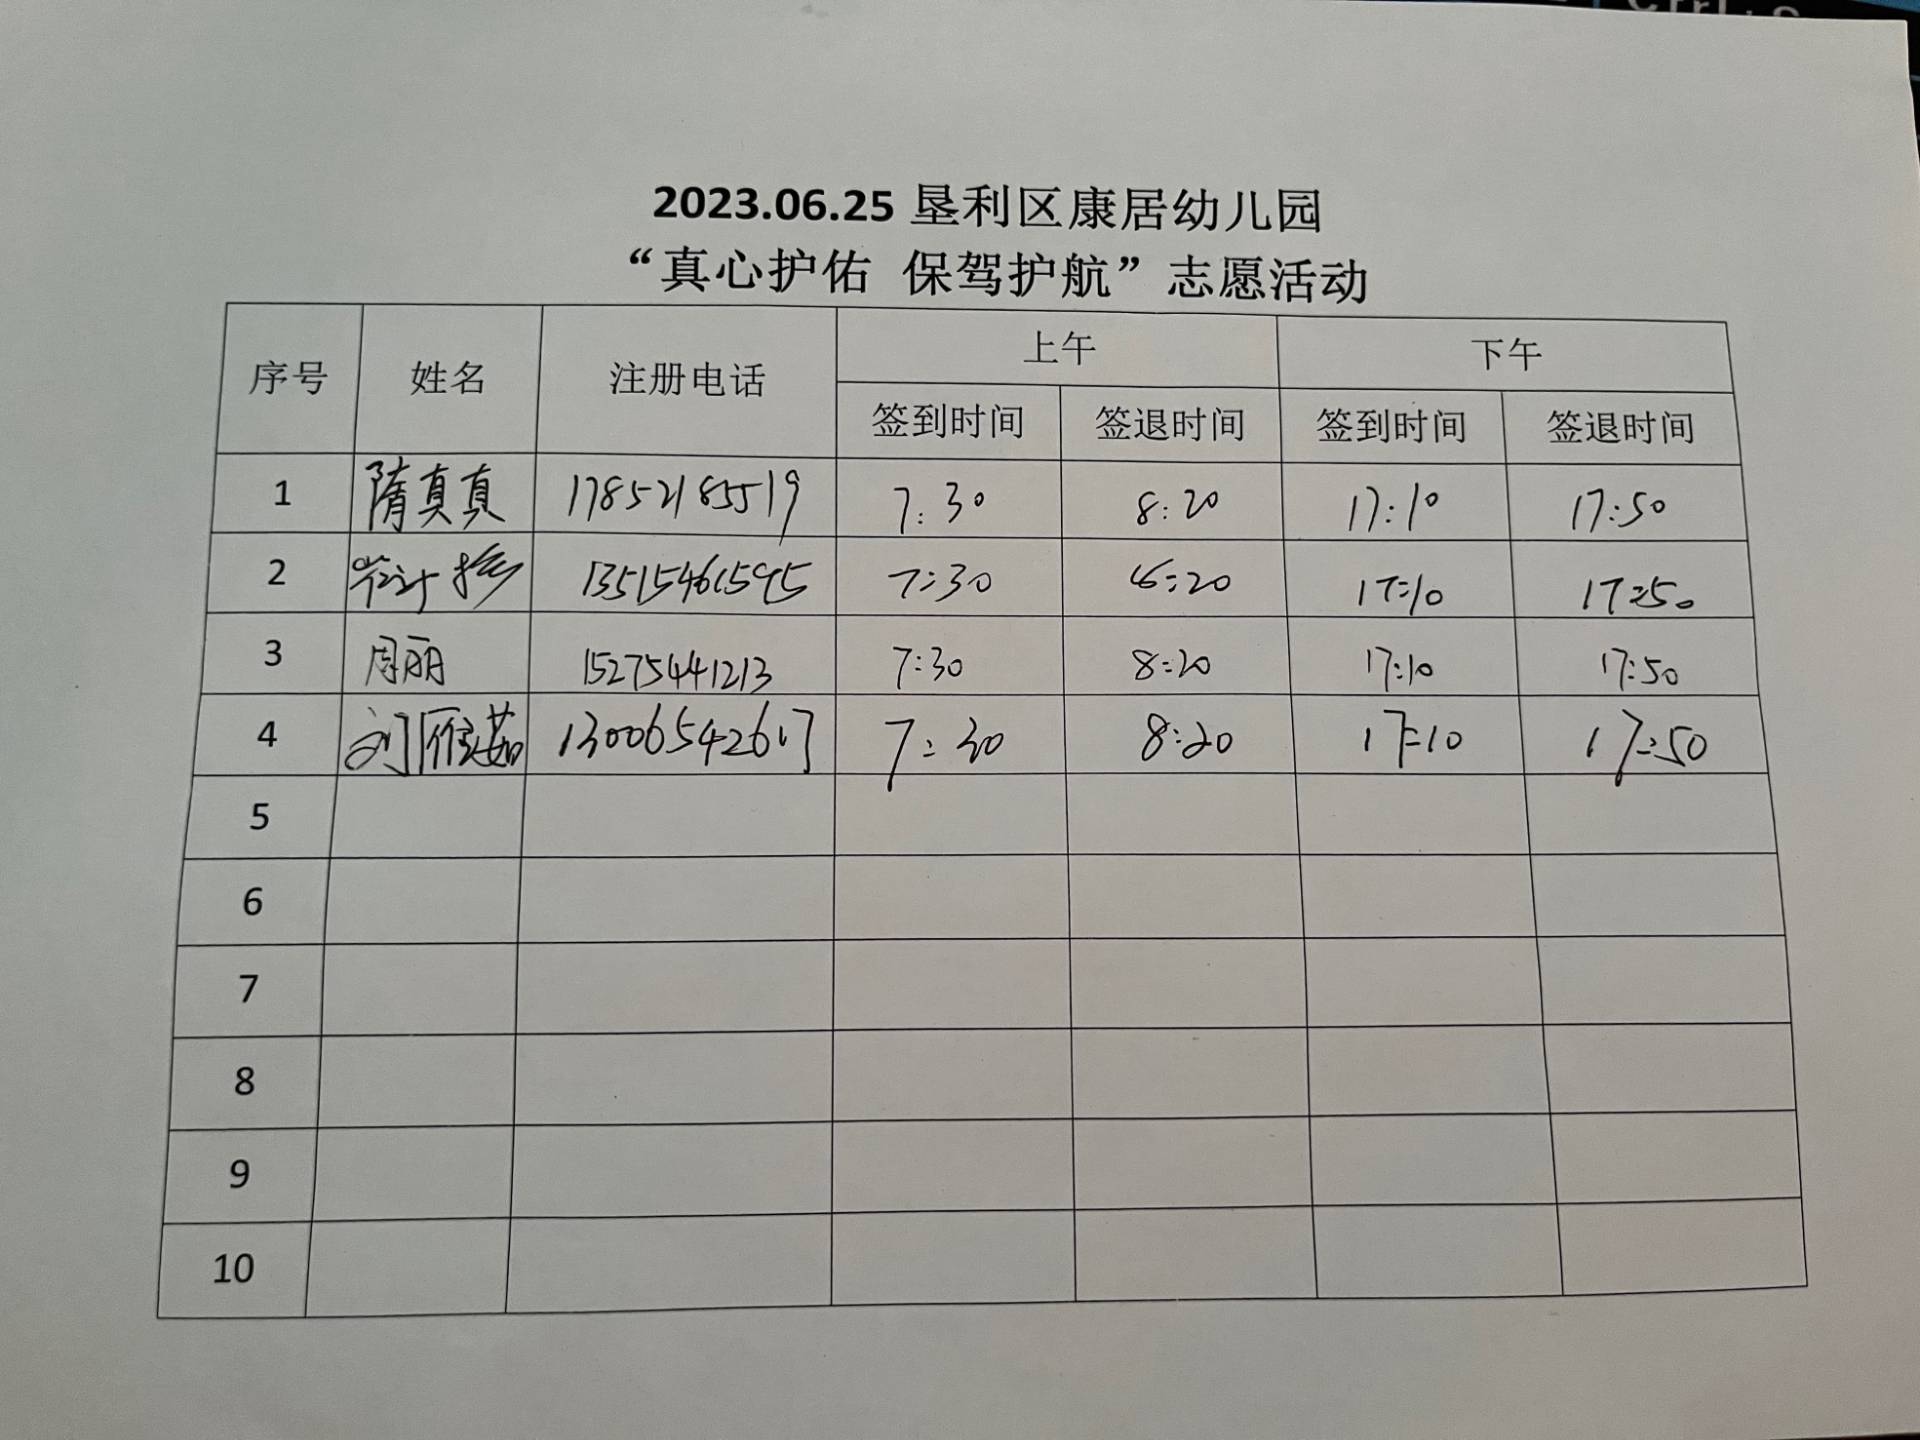 Ctrl+S
2023.06.25 垦利区康居幼儿园
“真心护佑 保驾护航”志愿活动
序号 姓名 注册电话 上午 下午
签到时间 签退时间 签到时间 签退时间
1 隋真真 17852185519 7:30 8:20 17:10 17:50
2 13515461595 7:30 8:20 17:10 17:50
3 周丽 15275441213 7:30 8:20 17:10 17:50
4 刘雁茹 13006542617 7:30 8:20 17:10 17:50
5
6
7
8
9
10